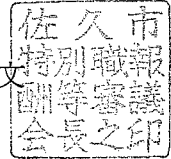 文
佐久市
特別職報
酬等審議
会長之印